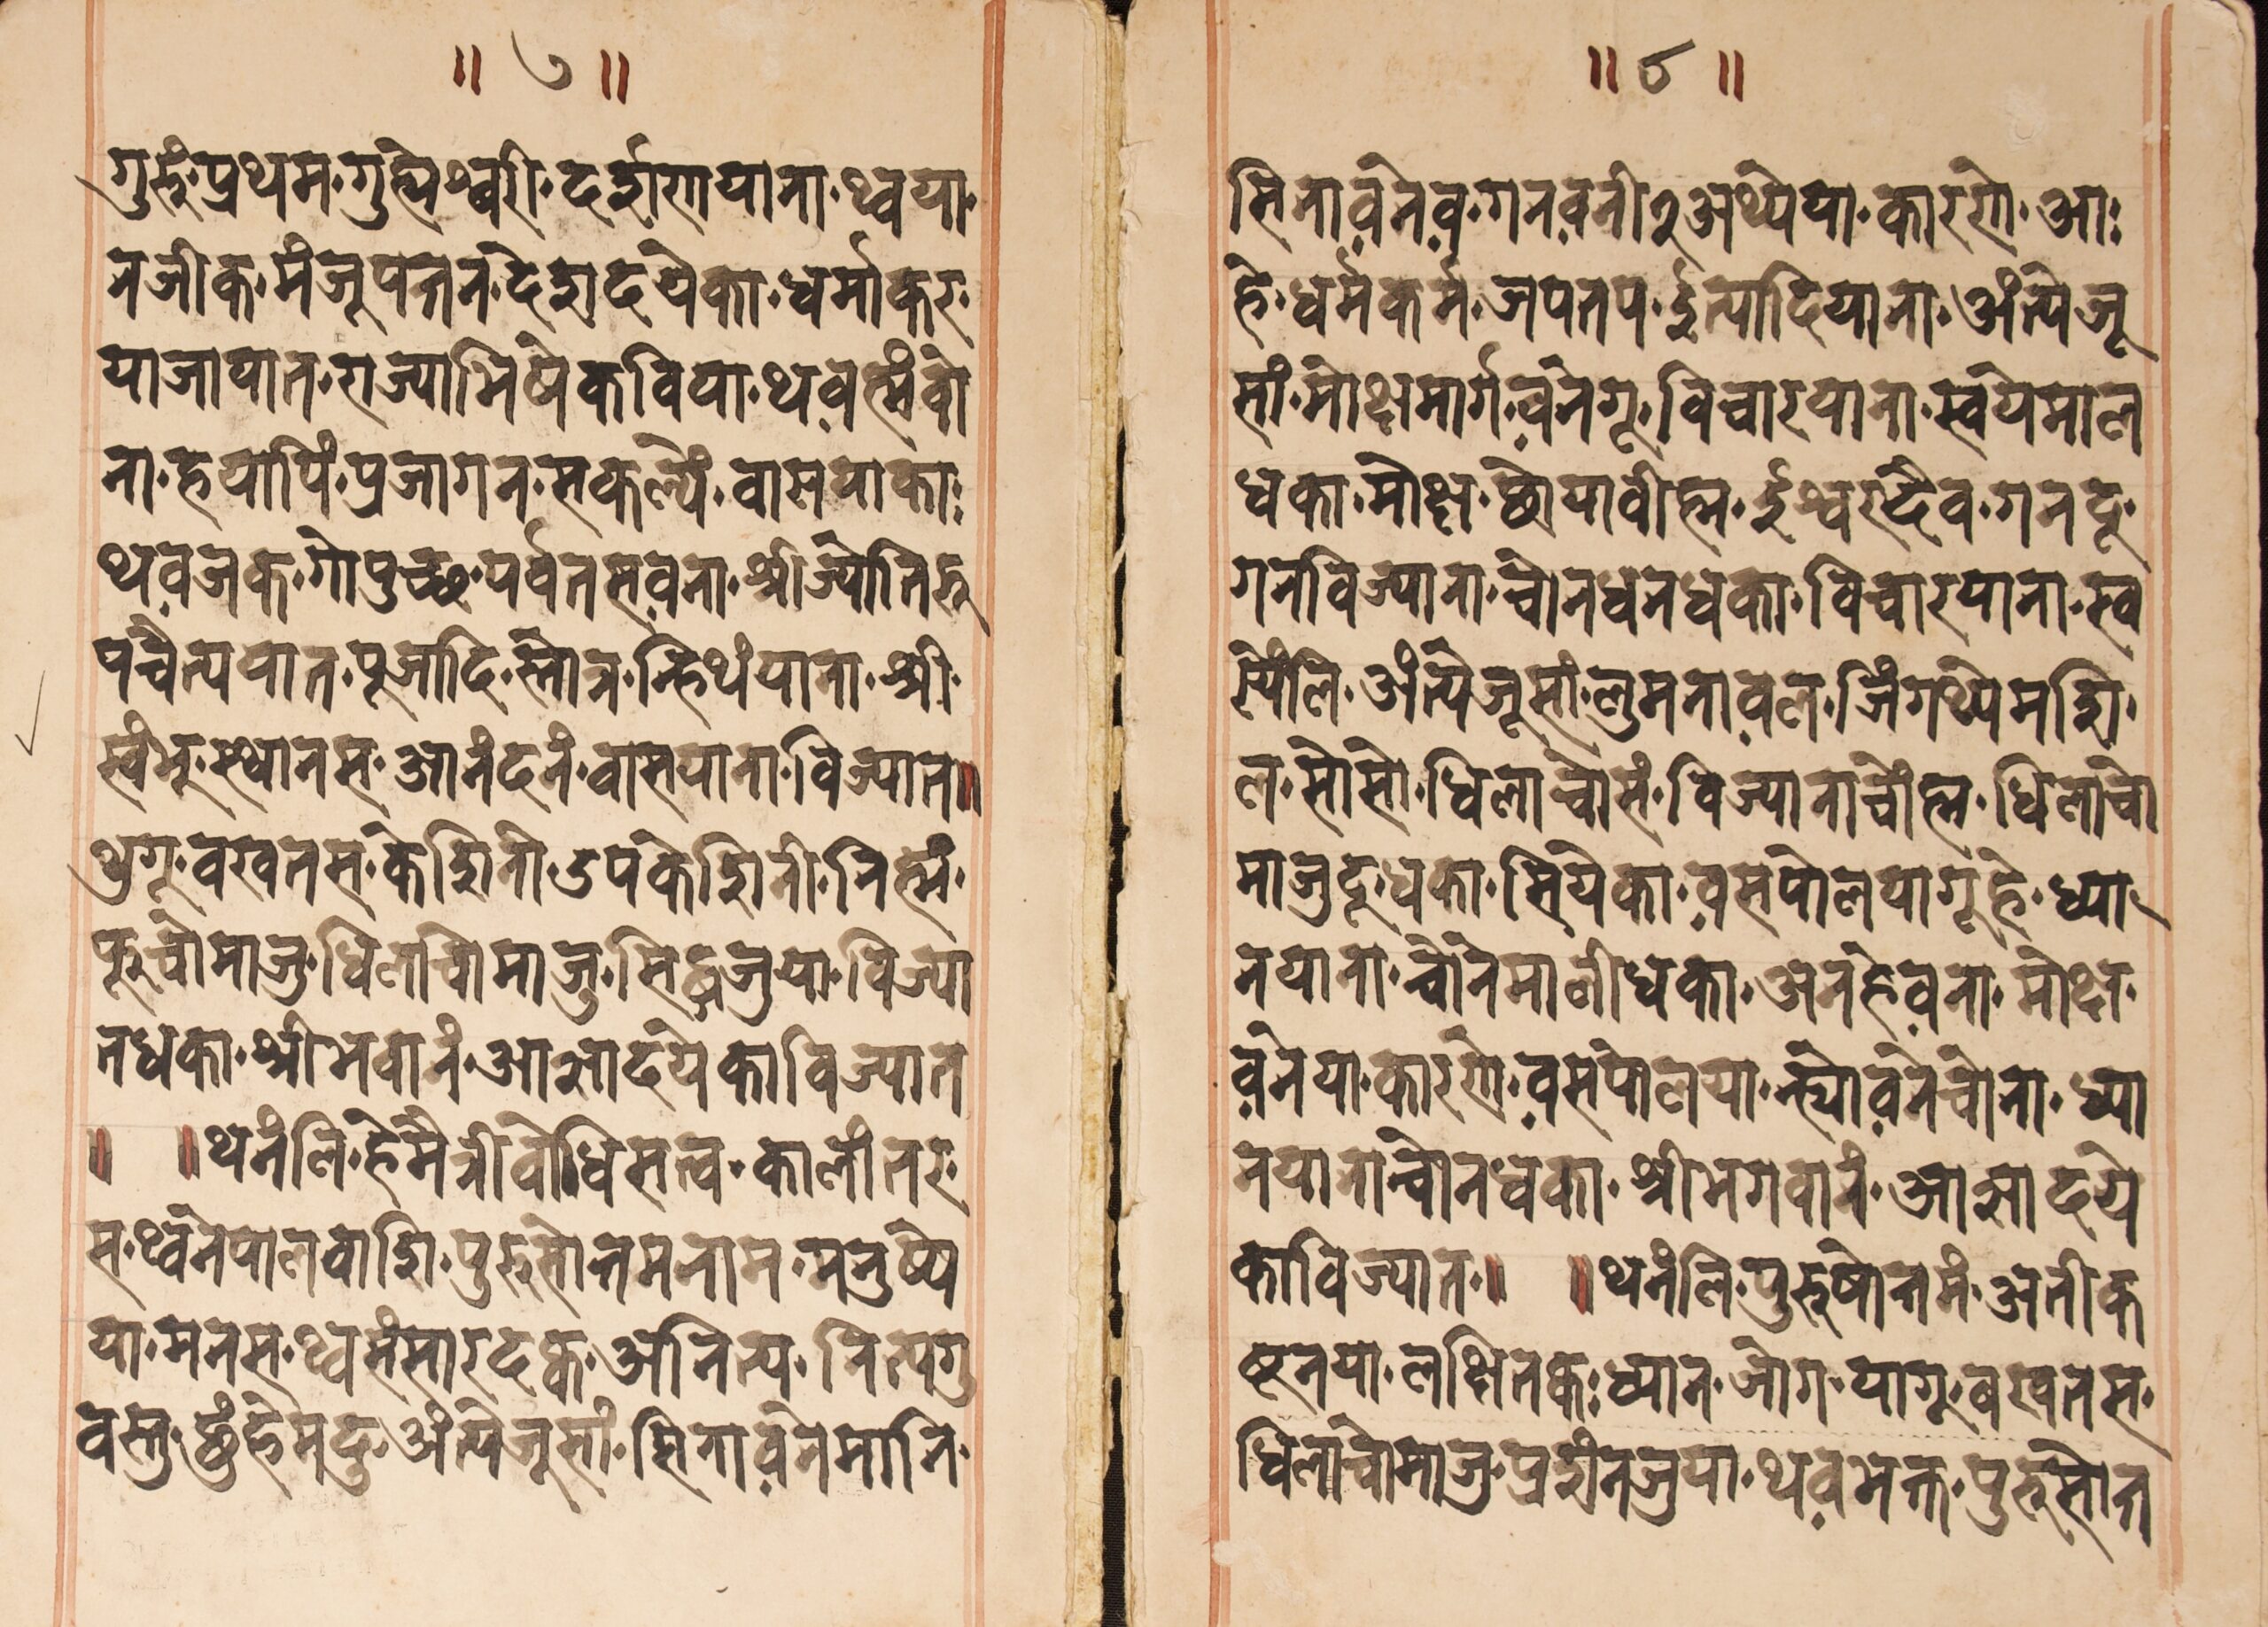 ॥ ७ ॥
गुरुं॰प्रथम॰गुह्येश्वरी॰दर्शणयाना॰थ्वया॰
नजीक॰मंजूपत्तन॰देशदयेका॰धर्माकर॰
याजायात॰राज्याभिषेकविया॰थव़ह्मंवो
ना॰हयापिं॰प्रजागन॰सकल्यें॰वासयाकाः
थव़जक॰गोपुच्छ॰पर्वतसव़ना॰श्रीज्योतिरु
पचैत्ययात॰पूजादि॰स्तोत्र॰न्हिथंयाना॰श्री॰
स्वंभू॰स्थानस॰आनंदनं॰वासयाना॰विज्यात॥
थुगू॰वखतस॰केशिनी॰उपकेशिनी॰निह्मं॰
फुचोमाजु॰धिलाचोमाजु॰सिद्धजुया॰विज्या
तधका॰श्रीभवानं॰आज्ञादयेकाविज्यात
॥ ॥थनंलि॰हेमैत्रीवोधिसत्व॰कालांतर॰
स॰थ्वनेपालवाशि॰पुरुसोत्तमनाम॰मनुष्ये
या॰मनस॰थ्वसंसारदक्व॰अनित्य॰नित्यगु
वस्तु॰छुंहेमदु॰अंत्येजूसां॰सिनाव़नेमानि॰
॥ ८ ॥
सिनाव़नेव़॰गनव़नी२अथ्येया॰कारणे॰आः
हे॰धर्मकर्म॰जपतप॰ईत्यादियाना॰अंत्येजू
सां॰मोक्षमार्ग॰व़नेगू॰विचारयाना॰स्वयेमाल
धका॰मोक्ष॰छोयावीह्म॰ईश्वरदेव॰गनदू॰
गनविज्याना॰चोनधनधका॰विचारयाना॰स्व
स्येंलि॰अंत्येजूसां॰लुमनाव़ल॰जिंगथ्येमशि॰
ल॰सोसो॰धिलाचोसं॰विज्यानाचोंह्म॰धिलाचो
माजुदू॰धका॰सियेका॰व़सपोलयागूहे॰ध्या॰
नयाना॰चोनेमालीधका॰अनहेव़ना॰मोक्ष॰
व़नेया॰कारणे॰व़सपोलया॰न्ह्योव़नेचोना॰ध्या
नयानाचोनधका॰श्रीभगवानं॰आज्ञादये
काविज्यात॰॥ ॥थनंलि॰पुरुषोत्तमं॰अतीक
ष्टनया॰लक्षितकः॰ध्यान॰जोग॰यागू॰बखतस॰
धिलाचोमाजु॰प्रशंनजुया॰थव़भक्त॰पुरुसोत्त